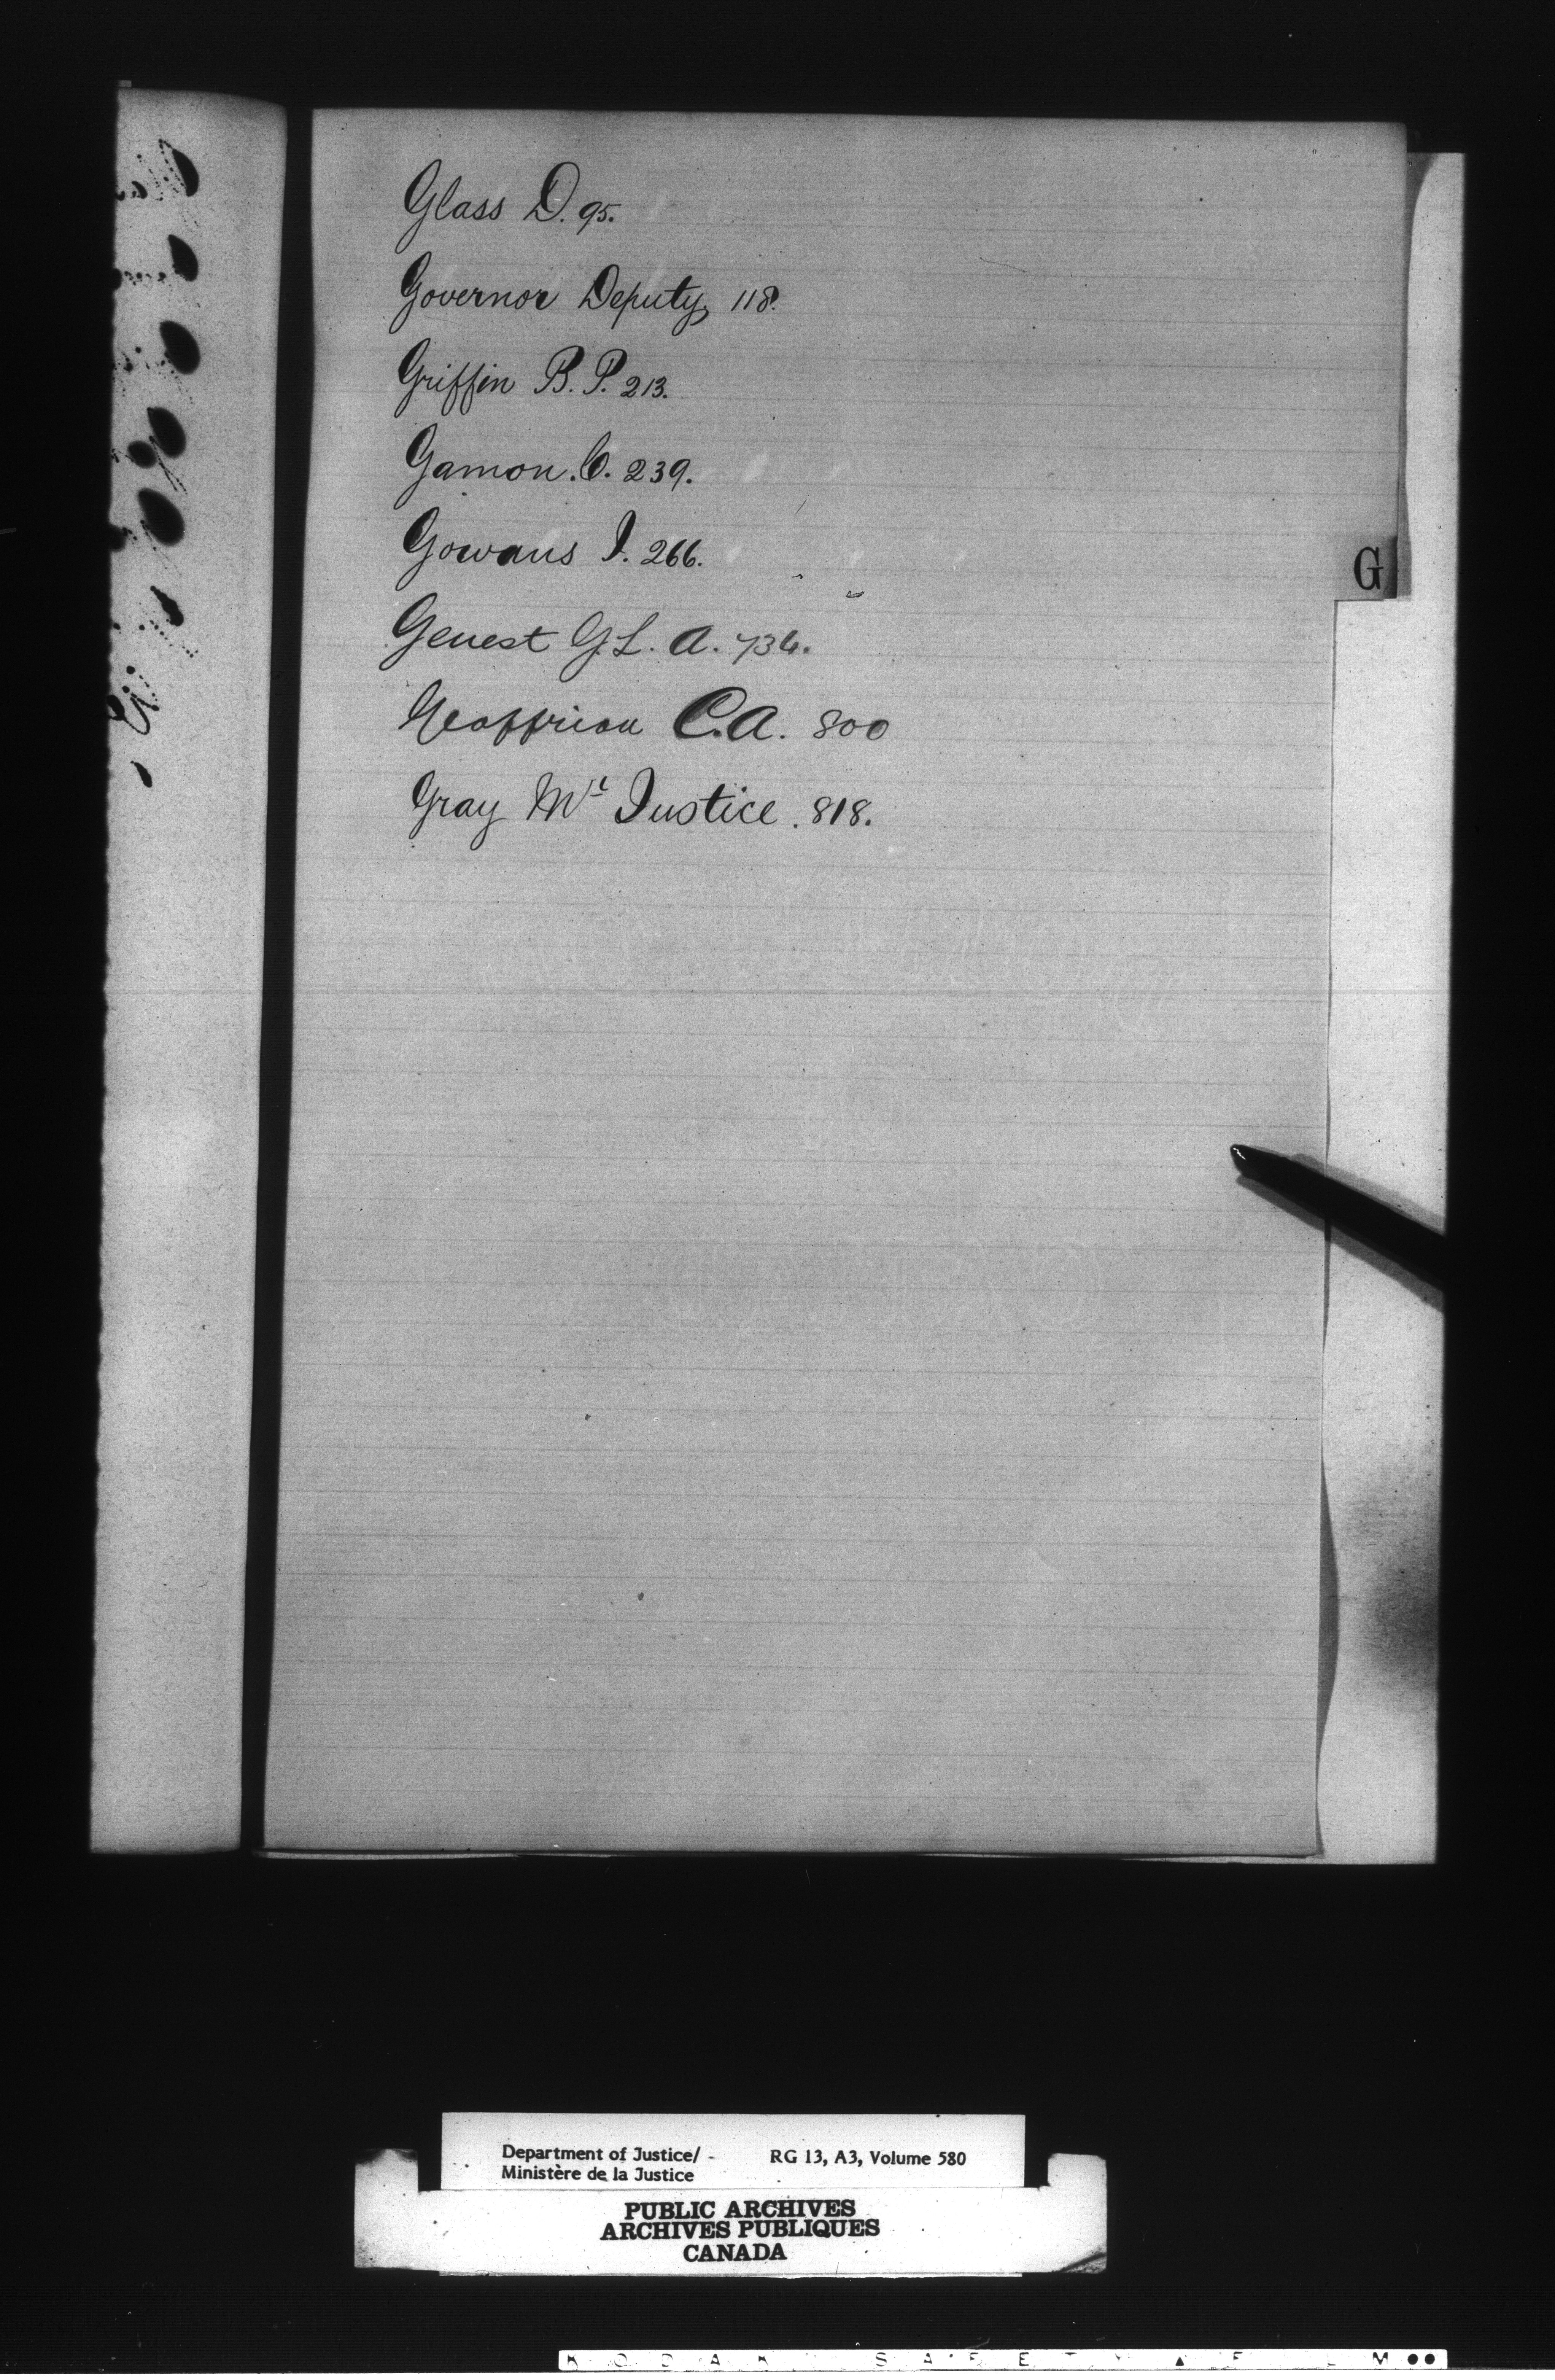 Glass D. 95.
Governor Deputy, 118.
Griffin B. P. 213.
Gamon. C. 239.
Gowans I. 266.
G
Genest G. L. A. 734.
Geoffrion C.A. 800
Gray Mr Justice. 818.
Department of Justice/ RG 13, A3, Volume 580
Ministère de la Justice
PUBLIC ARCHIVES
ARCHIVES PUBLIQUES
CANADA
KODAK SAFETY FILM